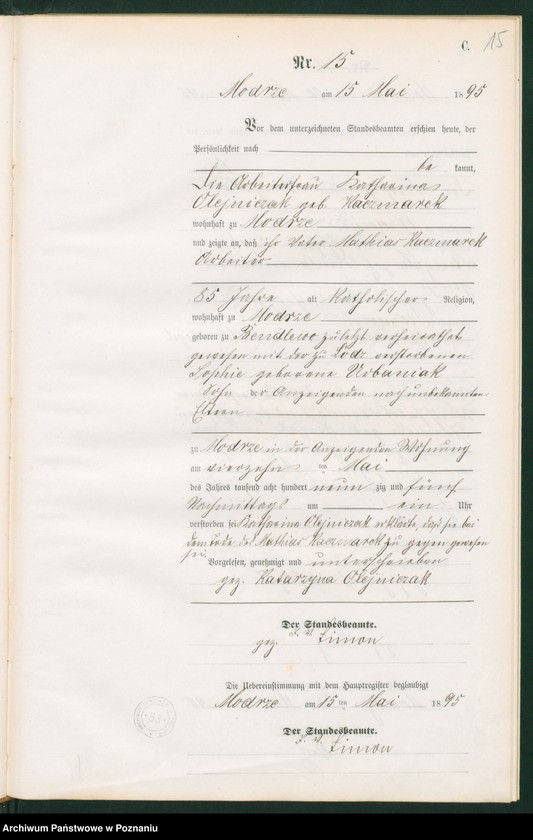 C. 15
Nr. 15
Modrze am 15 Mai 1895
Vor dem unterzeichneten Standesbeamten erschien heute, der
Persönlichkeit nach
be kannt,
Die Arbeiterfrau Katharina
Olejniczak geb. Kaczmarek
wohnhaft zu Modrze
und zeigte an, daß ihr Vater Mathias Kaczmarek
Arbeiter
85 Jahre alt Katholischer Religion,
wohnhaft zu Modrze
geboren zu Bendlewo zuletzt verheirathet
gewesen mit der zu Lodz verstorbenen
Sophie geborene Urbaniak
Sohn der Anzeigenden nach unbekannten
Eltern
zu Modrze in der Anzeigenden Wohnung
am vierzehn ten Mai
des Jahres tausend acht hundert neun zig und fünf
Nachmittags um ein Uhr
verstorben sei Katharina Olejniczak erklärte, daß sie bei
dem Tode des Mathias Kaczmarek zu gegen gewesen
sei.
Vorgelesen, genehmigt und unterschrieben
gez. Katarzyna Olejniczak
Der Standesbeamte.
gez. Simon
Die Uebereinstimmung mit dem Hauptregister beglaubigt
Modrze am 15 ten Mai 1895
Der Standesbeamte.
Simon
Archiwum Państwowe w Poznaniu